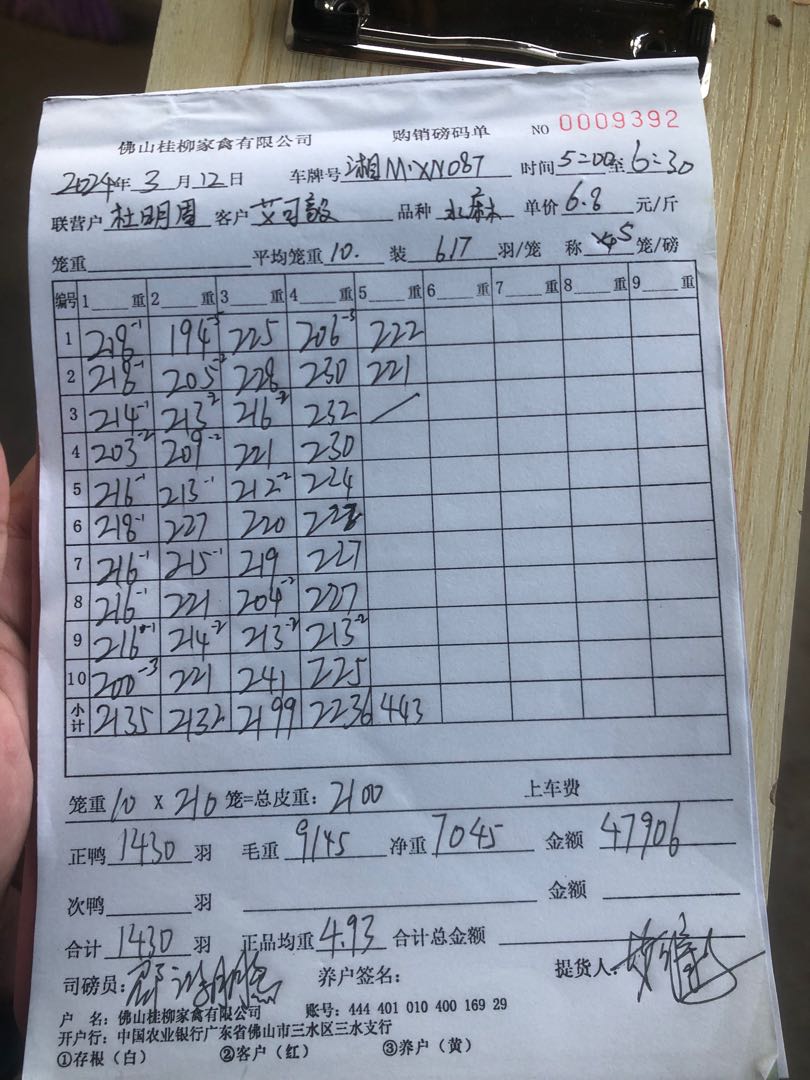 佛山桂柳家禽有限公司 购销磅码单 NO 0009392
2024年 3月12日 车牌号 湘M·XN087 时间 5=00至6=30
联营户 杜明周 客户 艾可毅 品种 水麻 单价 6.8 元/斤
笼重 平均笼重 10. 装 6.17 羽/笼 称 5 笼/磅
编号 1 重 2 重 3 重 4 重 5 重 6 重 7 重 8 重 9 重
1 218-1 194-5 225 206-3 222
2 218-1 205-2 228 230 221
3 214-1 213-2 216-2 232 /
4 203-2 209-2 221 230
5 216-1 213-1 212-2 224
6 218-1 227 220
7 216-1 215-1 219 227
8 216-1 221 204-2 227
9 216-1 214-2 213-2 213-2
10 200-3 221 241 225
小计 2135 2132 2199 2236 443
笼重 10 X 210 笼=总皮重: 2100 上车费
正鸭 1430 羽 毛重 9145 净重 7045 金额 47906
次鸭 羽 金额
合计 1430 羽 正品均重 4.93 合计总金额
司磅员: 养户签名: 提货人:
户 名: 佛山桂柳家禽有限公司 账号: 444 401 010 400 169 29
开户行: 中国农业银行广东省佛山市三水区三水支行
①存根(白) ②客户(红) ③养户(黄)